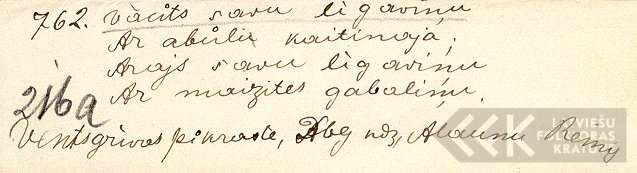 762. Vācits savu līgaviņu
Ar abūliu kaitinaja;
Arajs savu līgaviņu
Ar maizites gabaliņu.
216a
Ventsgrivas pikraste, Dbg ndz, Alauну
LATVIEŠU
FOLKLORAS
KRĀTUVE